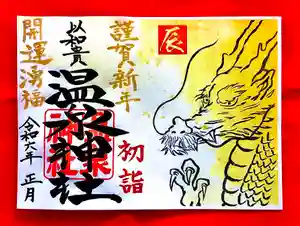 辰
謹賀新年
初詣
以和貴
温泉神社
開運湧福
令和六年 正月